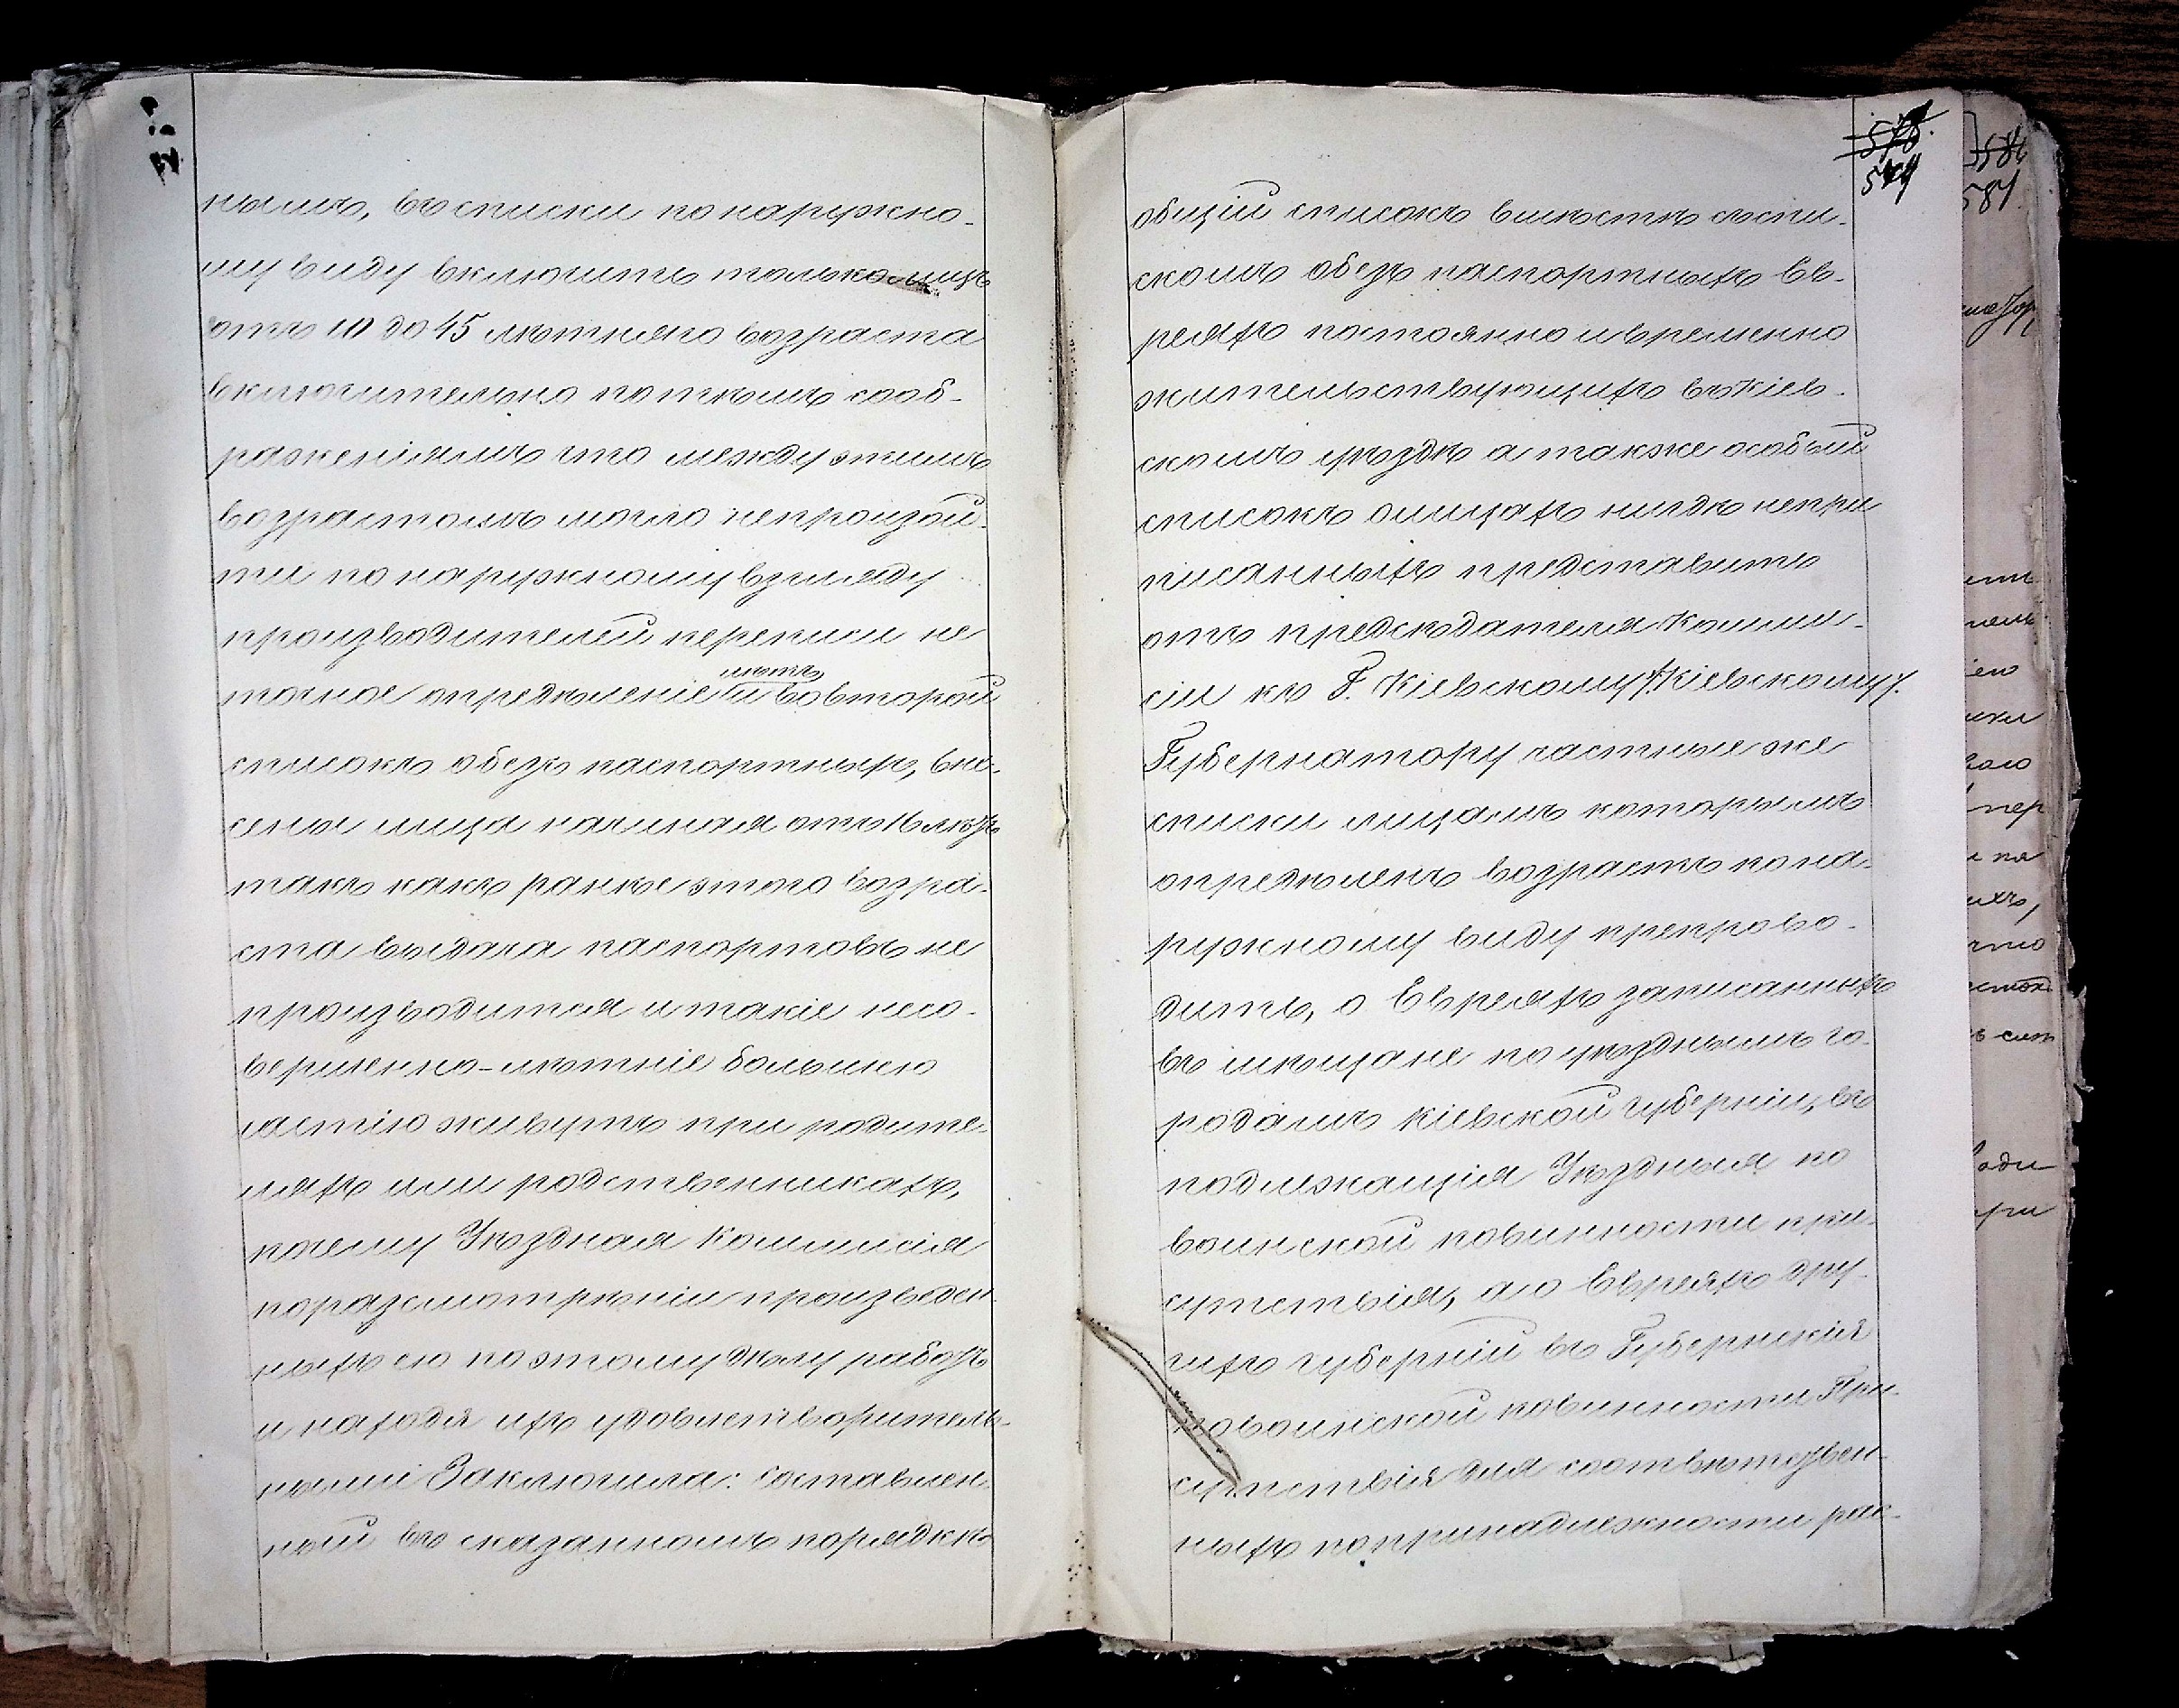 нымъ, въ списки по наружно-
му виду включить только лицъ
отъ 10 до 45 лѣтняго возраста
включительно по тѣмъ сооб-
раженіямъ что между этимъ
возрастомъ могло непроизой-
ти по наружному взгляду
производителей переписи не
лѣтъ
точное опредѣленіе и во второй
списокъ о безъ паспортныхъ, вне-
сены лица начиная отъ 16 лѣтъ
такъ какъ ранѣе этого возра-
ста выдача паспортовъ не
производится и такіе несо-
вершенно-лѣтніе большею
частію живутъ при родите-
ляхъ или родственникахъ,
почему Уѣздная Коммисія
по разсмотрѣніи произведен-
ныхъ ею по этому дѣлу работъ
и находя ихъ удовлетворитель-
ными Заключила: составлен-
ный въ сказанномъ порядкѣ
578.
579
общій списокъ вмѣстѣ съ спи-
скомъ о безъ паспортныхъ Ев-
реяхъ постоянно и временно
жительствующихъ въ Кіев-
скомъ уѣздѣ а также особый
списокъ о лицахъ нигдѣ непри
писанныхъ представить
отъ предсѣдателя Коммис-
сіи къ Г. Кіевскому /:Кіевскому/.
Губернатору частные же
списки лицамъ которымъ
опредѣленъ возрастъ по на-
ружному виду препрово-
дить, о Евреяхъ записанныхъ
въ мѣщане по уѣзднымъ го-
родамъ Кіевской губерніи, въ
подлежащія Уѣздныя по
воинской повинности при-
сутствія, а о Евреяхъ дру-
гихъ губерній въ Губернскія
по воинской повинности При-
сутствія для соотвѣтствен-
ныхъ по принадлежности рас-
584
581